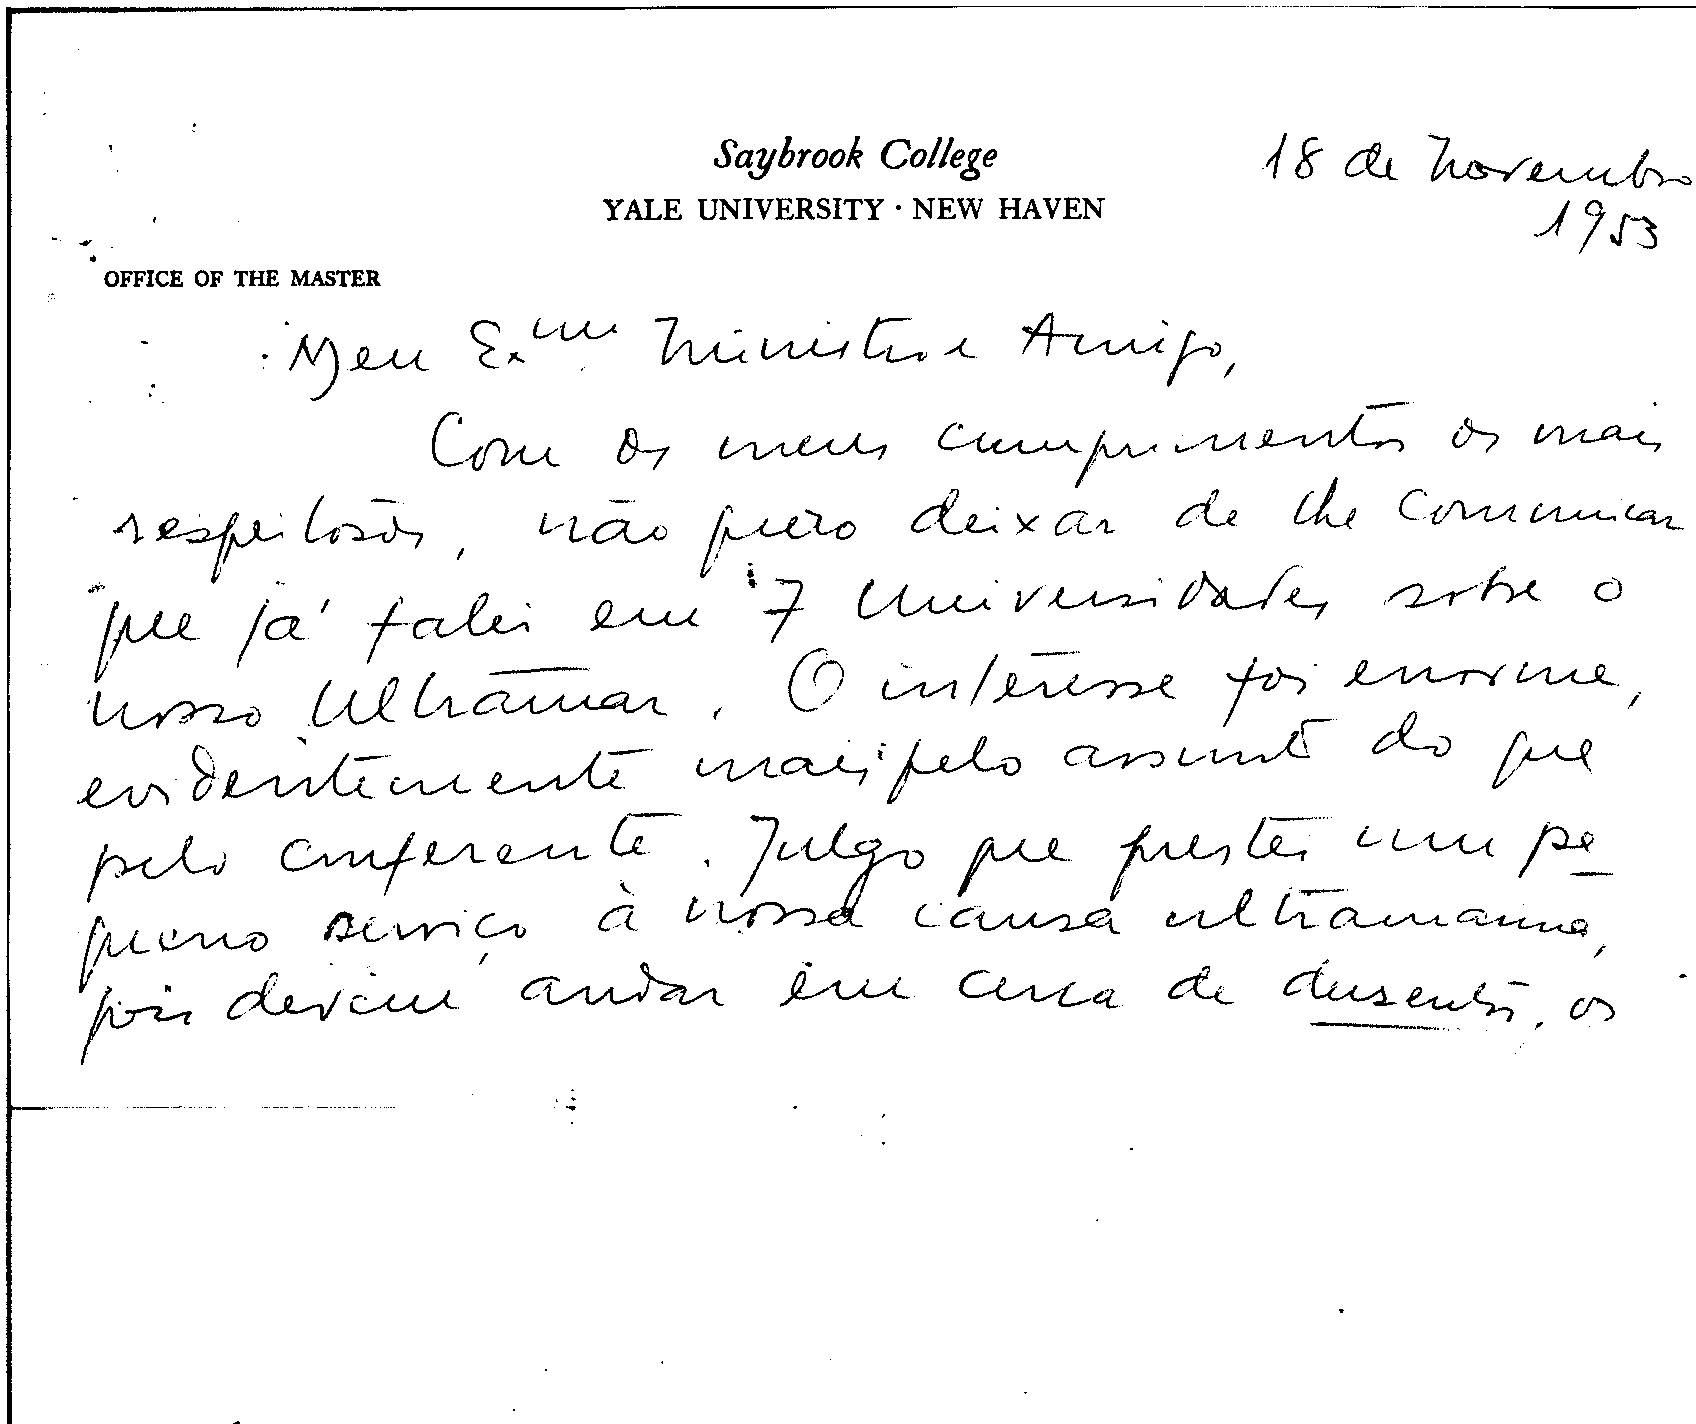 Saybrook College
YALE UNIVERSITY · NEW HAVEN
18 de Novembro
1953
OFFICE OF THE MASTER
Meu Exmo Ministro e Amigo,
Com os meus cumprimentos os mais
respeitosos, não quero deixar de lhe comunicar
que já falei em 7 Universidades sobre o
nosso Ultramar. O interesse foi enorme,
evidentemente mais pelo assunto do que
pelo conferente. Julgo que prestei um pe
queno serviço à nossa causa ultramarina,
pois devem andar em cerca de dusentos, os